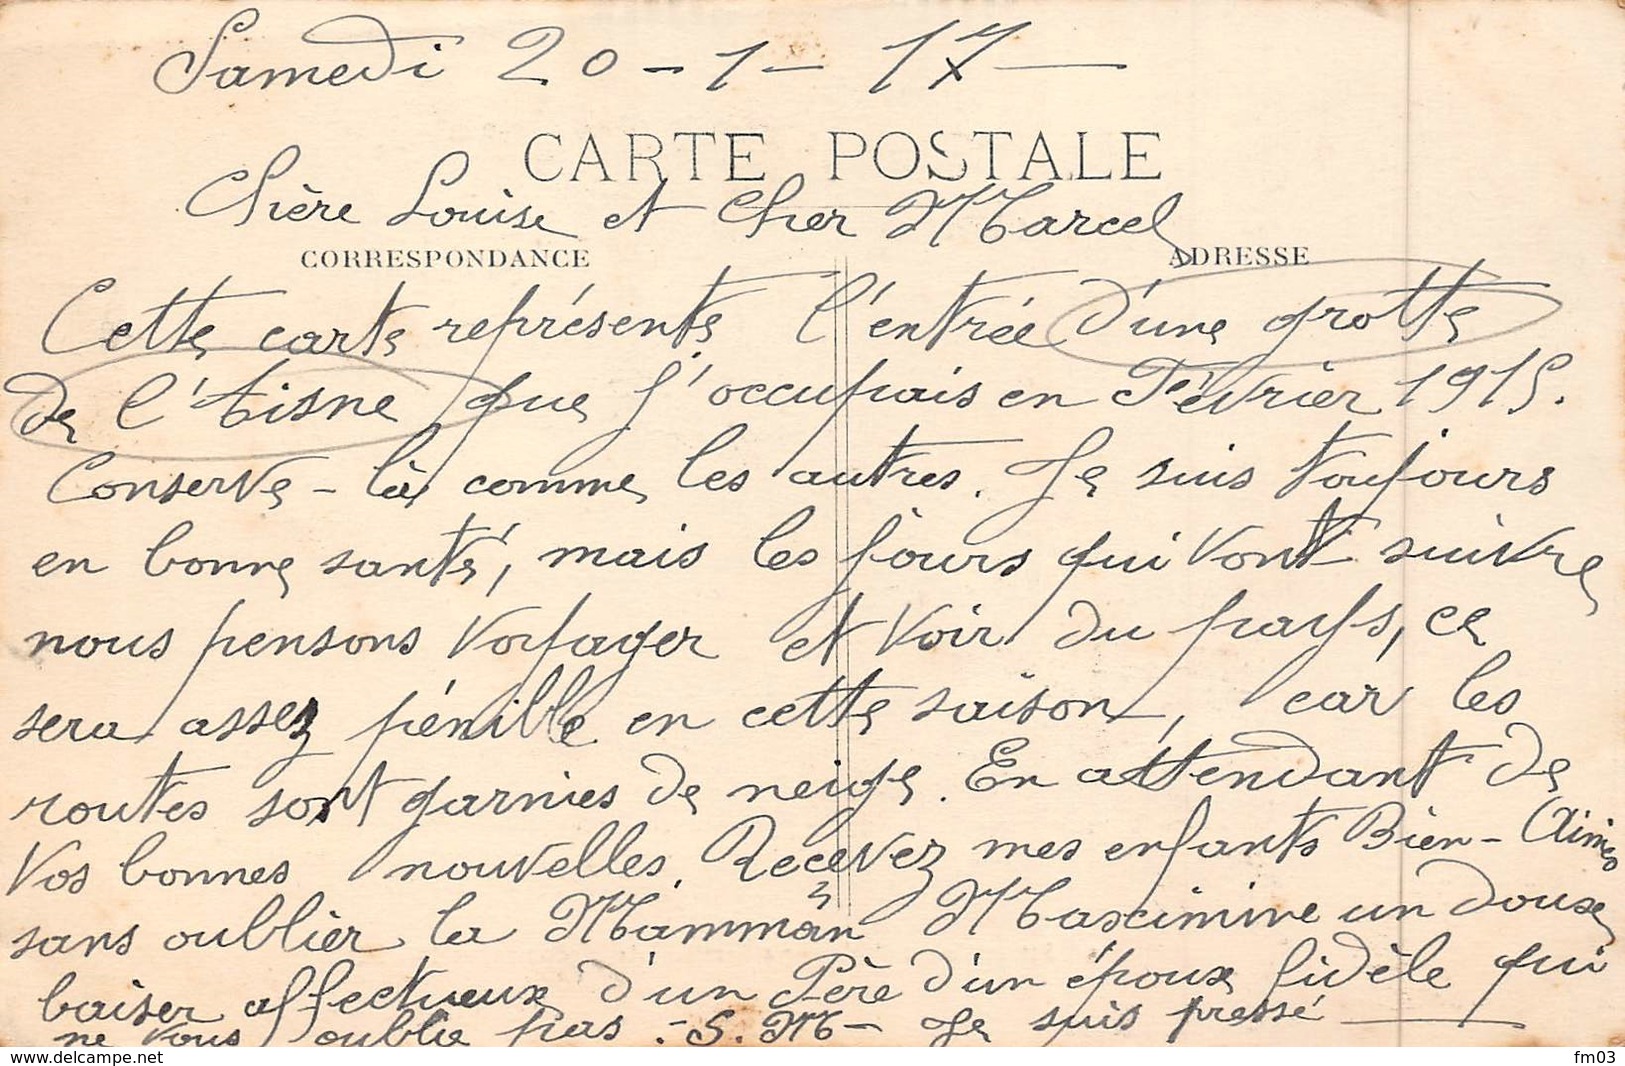 Samedi 20-1-17
CARTE POSTALE
Chère Louise et Cher Marcel
CORRESPONDANCE
ADRESSE
Cette carte représente l'entrée d'une grotte
de l'Aisne que j'occupais en Février 1915.
Conserve-là comme les autres. Je suis toujours
en bonne santé, mais les jours qui vont suivre
nous pensons voyager et voir du pays, ce
sera assez pénible en cette saison, car les
routes sont garnies de neige. En attendant de
Vos bonnes nouvelles. Recevez mes enfants Bien-Aimés
sans oublier la Mamman Maximine un doux
baiser affectueux d'un Père d'un époux fidèle qui
ne vous oublie pas. - S. M - Je suis pressé
www.delcampe.net
fm03